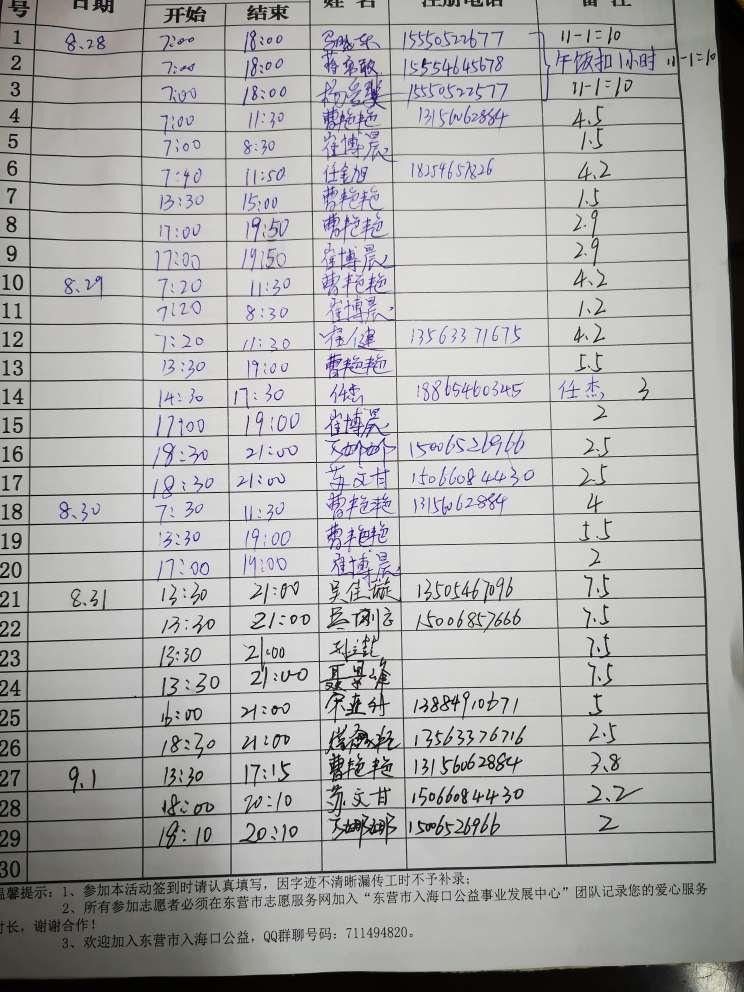 号 日期 开始 结束 姓名 注册电话 备注
1 8.28 7:00 18:00 15550522677 11-1=10
2 7:00 18:00 15554645678 午饭扣1小时 11-1=10
3 7:00 18:00 15550522577 11-1=10
4 7:00 11:30 曹艳艳 13156062884 4.5
5 7:00 8:30 崔博晨 1.5
6 7:40 11:50 任金旭 18254657826 4.2
7 13:30 15:00 曹艳艳 1.5
8 17:00 19:50 曹艳艳 2.9
9 17:00 19:50 崔博晨 2.9
10 8.29 7:20 11:30 曹艳艳 4.2
11 7:20 8:30 崔博晨 1.2
12 7:20 11:30 崔健 13563371675 4.2
13 13:30 19:00 曹艳艳 5.5
14 14:30 17:30 任杰 18865460345 任杰 3
15 17:00 19:00 崔博晨 2
16 18:30 21:00 15006526966 2.5
17 18:30 21:00 苏文甘 15066084430 2.5
18 8.30 7:30 11:30 曹艳艳 13156062884 4
19 13:30 19:00 曹艳艳 5.5
20 17:00 19:00 崔博晨 2
21 8.31 13:30 21:00 吴佳璇 13505467096 7.5
22 13:30 21:00 15006857666 7.5
23 13:30 21:00 7.5
24 13:30 21:00 7.5
25 16:00 21:00 13884910671 5
26 18:30 21:00 13563376716 2.5
27 9.1 13:30 17:15 曹艳艳 13156062884 3.8
28 18:00 20:10 苏文甘 15066084430 2.2
29 18:10 20:10 15006526966 2
30
温馨提示：1、参加本活动签到时请认真填写，因字迹不清晰漏传工时不予补录；
2、所有参加志愿者必须在东营市志愿服务网加入“东营市入海口公益事业发展中心”团队记录您的爱心服务
时长，谢谢合作！
3、欢迎加入东营市入海口公益，QQ群聊号码：711494820。